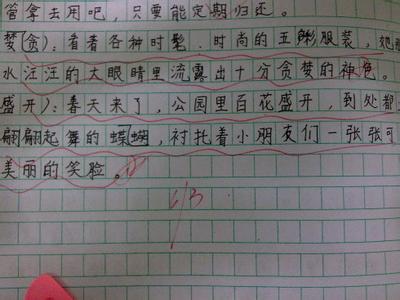 管拿去用吧，只要能定期归还。
婪(贪)：看着各种时髦、时尚的五彩服装，她
水汪汪的大眼睛里流露出十分贪婪的神色。
盛开)：春天来了，公园里百花盛开，到处都
翩翩起舞的蝶蝴，衬托着小朋友们一张张可
美丽的笑脸。